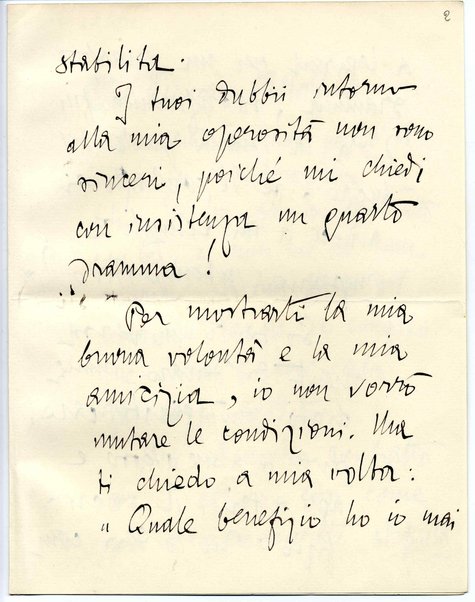 2
stabilita.
I tuoi dubbii intorno
alla mia operosità non sono
sinceri, poiché mi chiedi
con insistenza un quarto
dramma!
Per mostrarti la mia
buona volontà e la mia
amicizia, io non vorrò
mutare le condizioni. Ma
ti chiedo a mia volta:
"Quale benefizio ho io mai